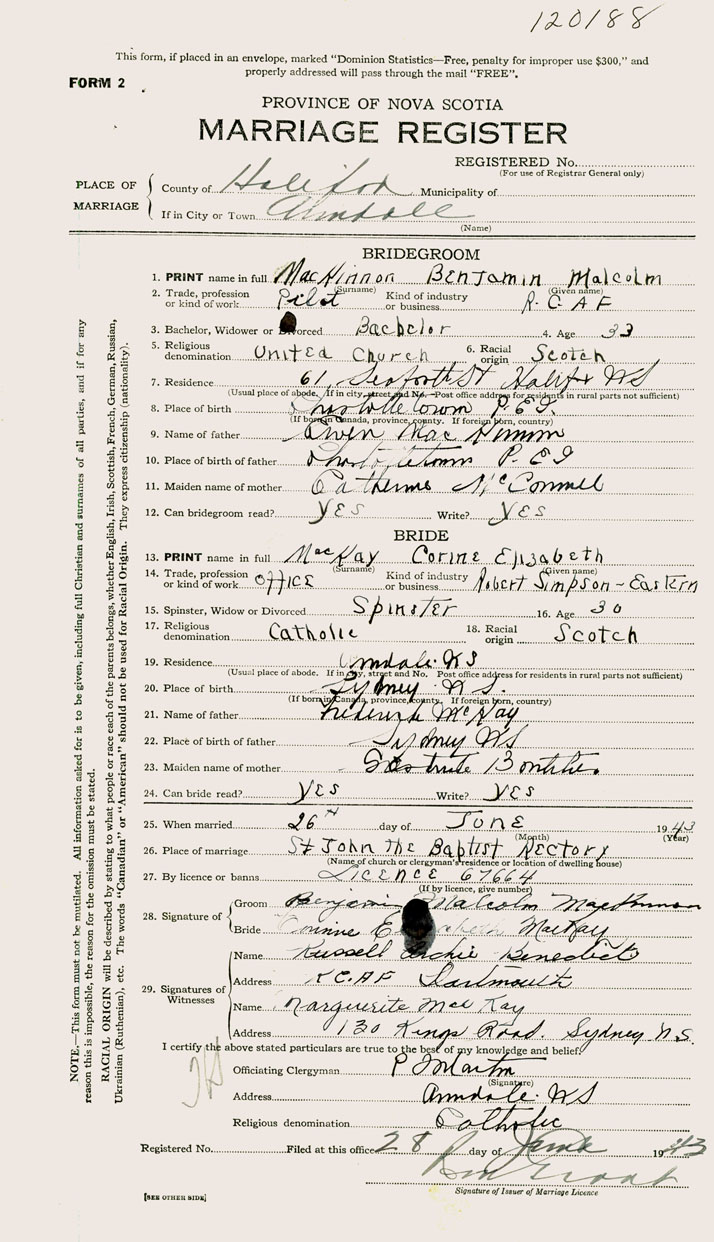 120188
This form, if placed in an envelope, marked "Dominion Statistics—Free, penalty for improper use $300," and
properly addressed will pass through the mail "FREE".
FORM 2
PROVINCE OF NOVA SCOTIA
MARRIAGE REGISTER
REGISTERED No.
(For use of Registrar General only)
PLACE OF MARRIAGE
County of Halifax Municipality of
If in City or Town Armdale
(Name)
BRIDEGROOM
1. PRINT name in full MacKinnon Benjamin Malcolm
(Surname) (Given name)
2. Trade, profession or kind of work Pilot Kind of industry or business R.C.A.F
3. Bachelor, Widower or Divorced Bachelor 4. Age 33
5. Religious denomination United Church 6. Racial origin Scotch
7. Residence 61, Seaforth St Halifax NS
(Usual place of abode. If in city, street and No. Post office address for residents in rural parts not sufficient)
8. Place of birth Charlottetown P.E.I.
(If born in Canada, province, county. If foreign born, country)
9. Name of father MacKinnon
10. Place of birth of father Charlottetown P.E.I
11. Maiden name of mother Catherine McConnel
12. Can bridegroom read? YES Write? YES
BRIDE
13. PRINT name in full MacKay Corine Elizabeth
(Surname) (Given name)
14. Trade, profession or kind of work OFFICE Kind of industry or business Robert Simpson - Eastern
15. Spinster, Widow or Divorced Spinster 16. Age 30
17. Religious denomination Catholic 18. Racial origin Scotch
19. Residence Armdale. NS
(Usual place of abode. If in city, street and No. Post office address for residents in rural parts not sufficient)
20. Place of birth Sydney N.S.
(If born in Canada, province, county. If foreign born, country)
21. Name of father Frederick McKay
22. Place of birth of father Sydney NS
23. Maiden name of mother
24. Can bride read? YES Write? YES
25. When married 26th day of JUNE 1943
(Month) (Year)
26. Place of marriage St John the Baptist Rectory
(Name of church or clergyman's residence or location of dwelling house)
27. By licence or banns LICENCE 67664
(If by licence, give number)
28. Signature of
Groom Benjamin Malcolm MacKinnon
Bride Corinne Elizabeth MacKay
29. Signatures of Witnesses
Name Russell Archie Benedict
Address RCAF Dartmouth
Name Marguerite MacKay
Address 130 Kings Road. Sydney N.S.
I certify the above stated particulars are true to the best of my knowledge and belief.
Officiating Clergyman P Martin
(Signature)
Address Armdale. NS
Religious denomination Catholic
Registered No. Filed at this office 28 day of June 1943
Signature of Issuer of Marriage Licence
[SEE OTHER SIDE]
NOTE.—This form must not be mutilated. All information asked for is to be given, including full Christian and surnames of all parties, and if for any
reason this is impossible, the reason for the omission must be stated.
RACIAL ORIGIN will be described by stating to what people or race each of the parents belongs, whether English, Irish, Scottish, French, German, Russian,
Ukrainian (Ruthenian), etc. The words "Canadian" or "American" should not be used for Racial Origin. They express citizenship (nationality).